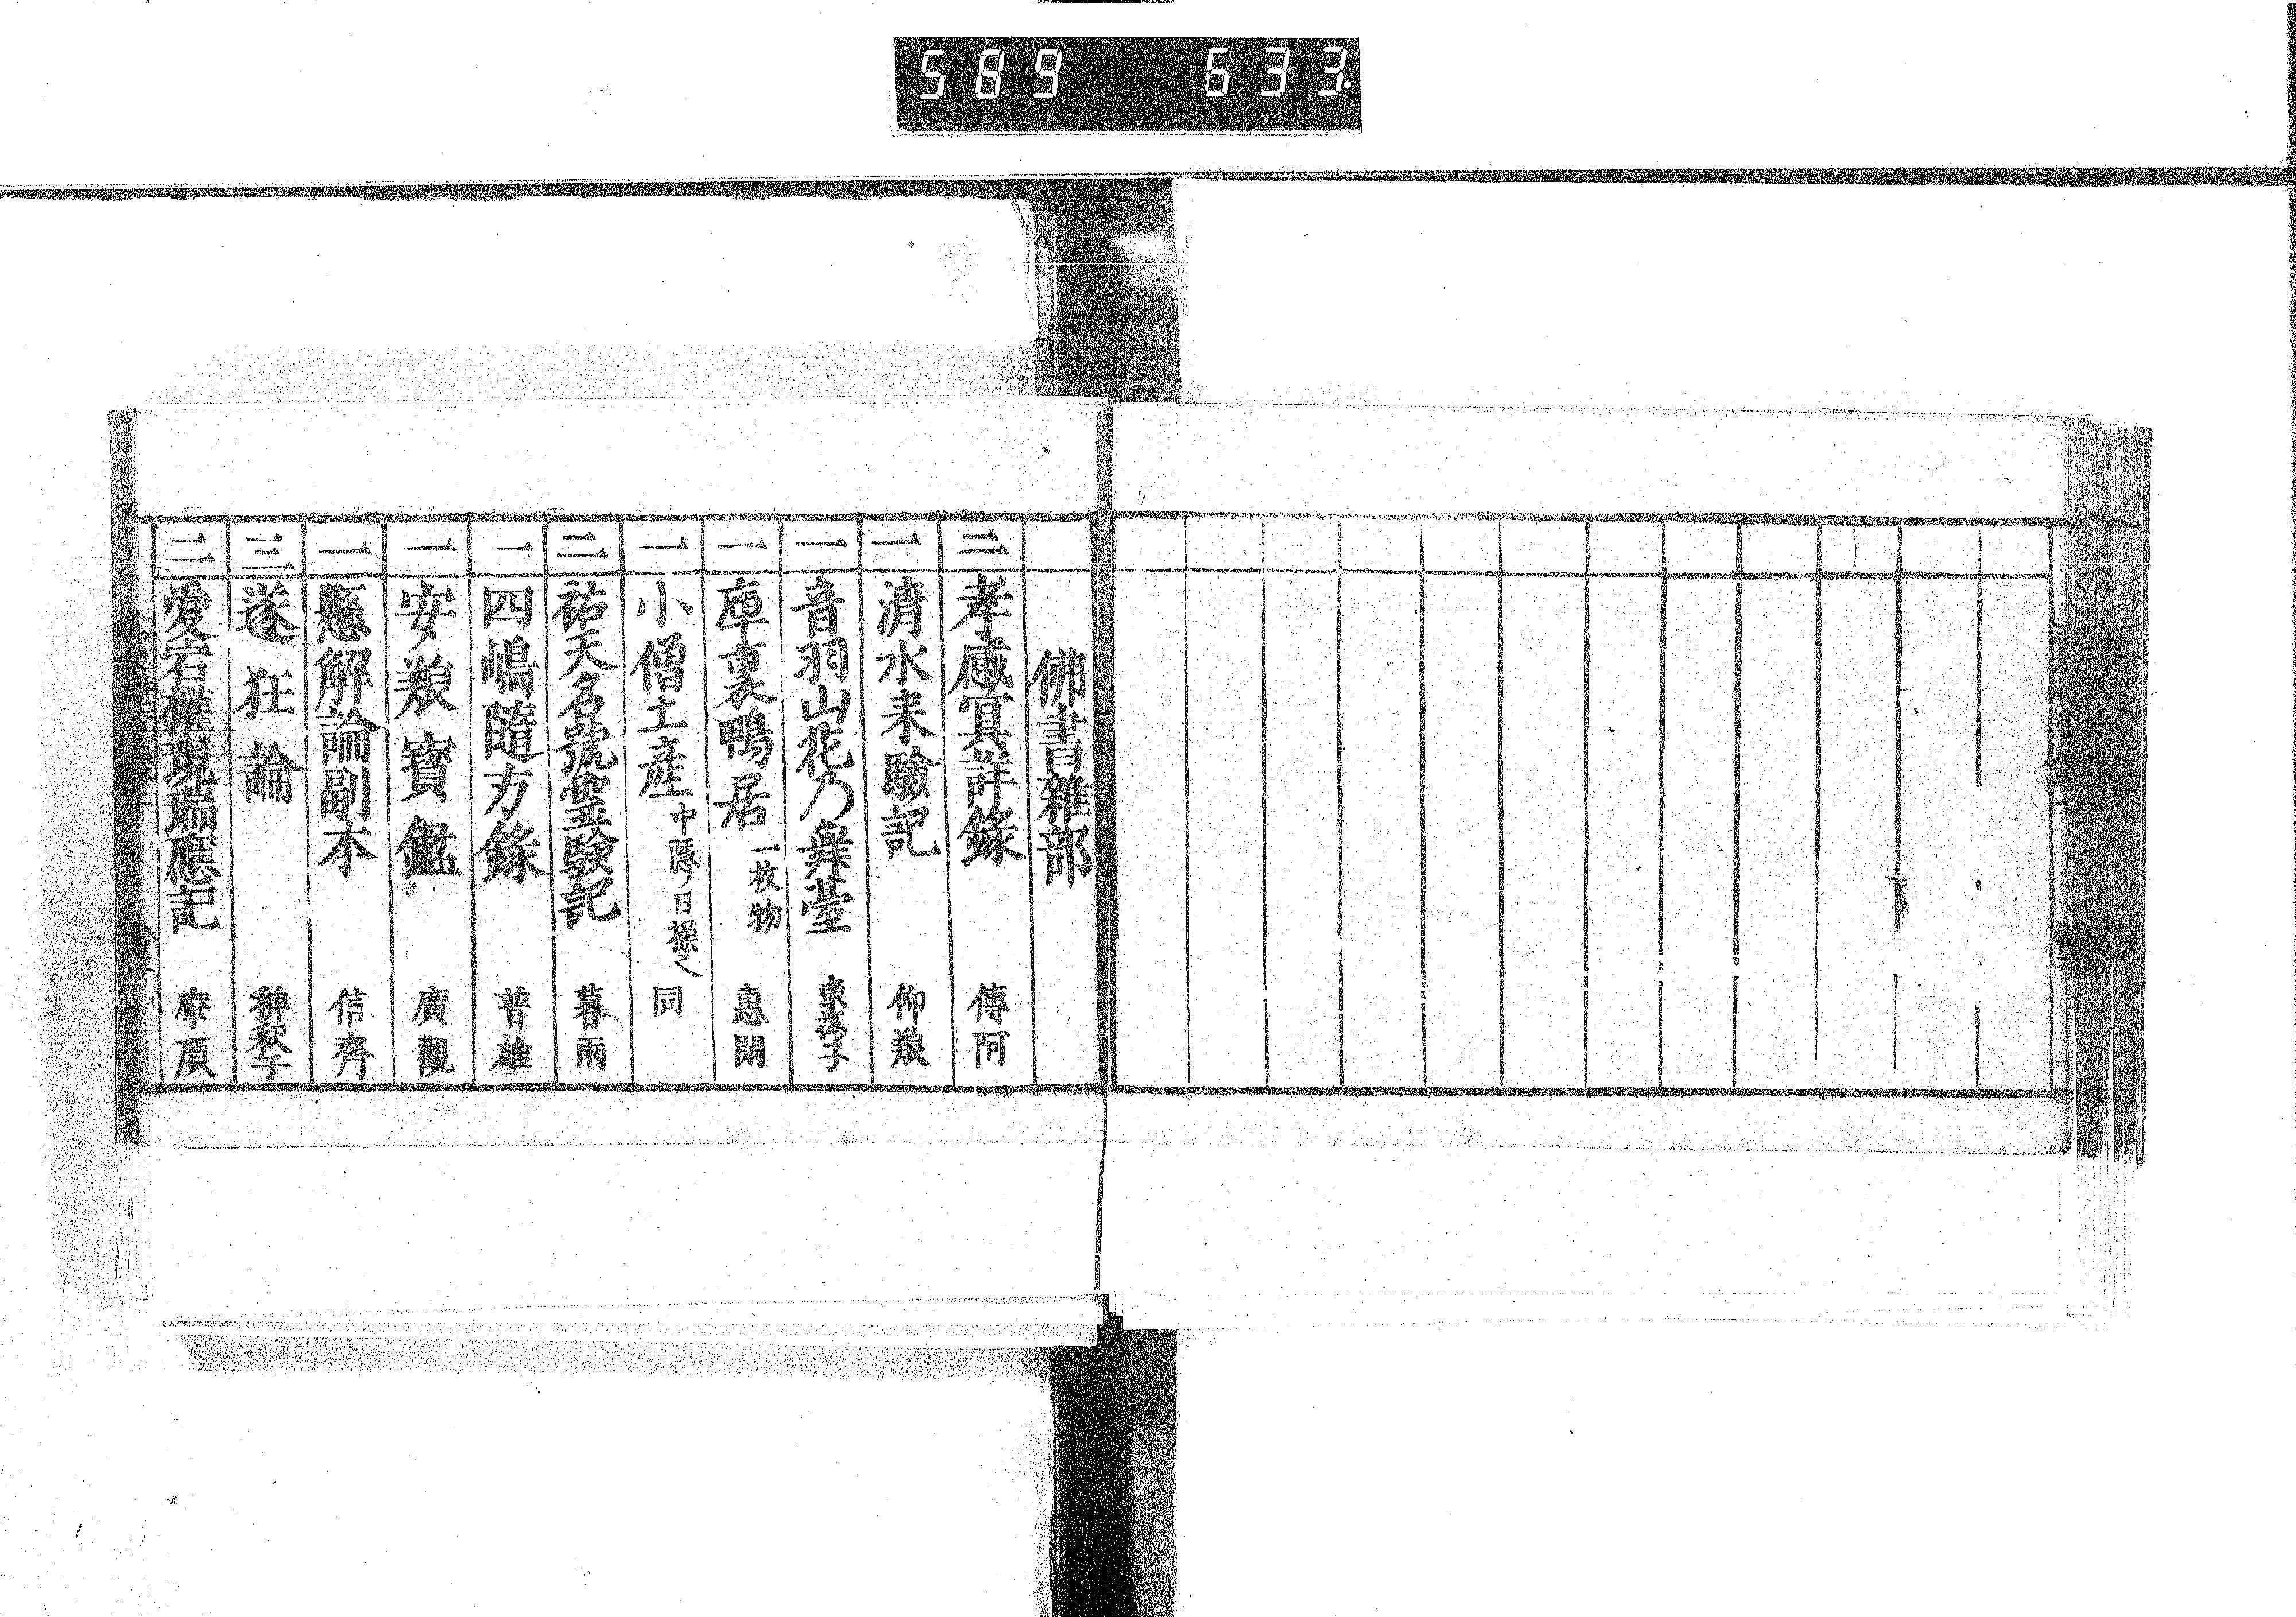 589 633.
佛書雜部
二 孝感冥祥錄 傳阿
一 清水来驗記 仰羪
一 音羽山花乃舞臺
一 庫裏鴨居 一枚物 惠開
一 小僧土産 中隠ノ日操之 同
二 祐天名號霊驗記 暮雨
一 四嶋隨方錄 普雄
一 安羪寶鑑 廣觀
一 懸解論副本 信齊
三 遂狂論
二 愛宕權現瑞應記 摩頂